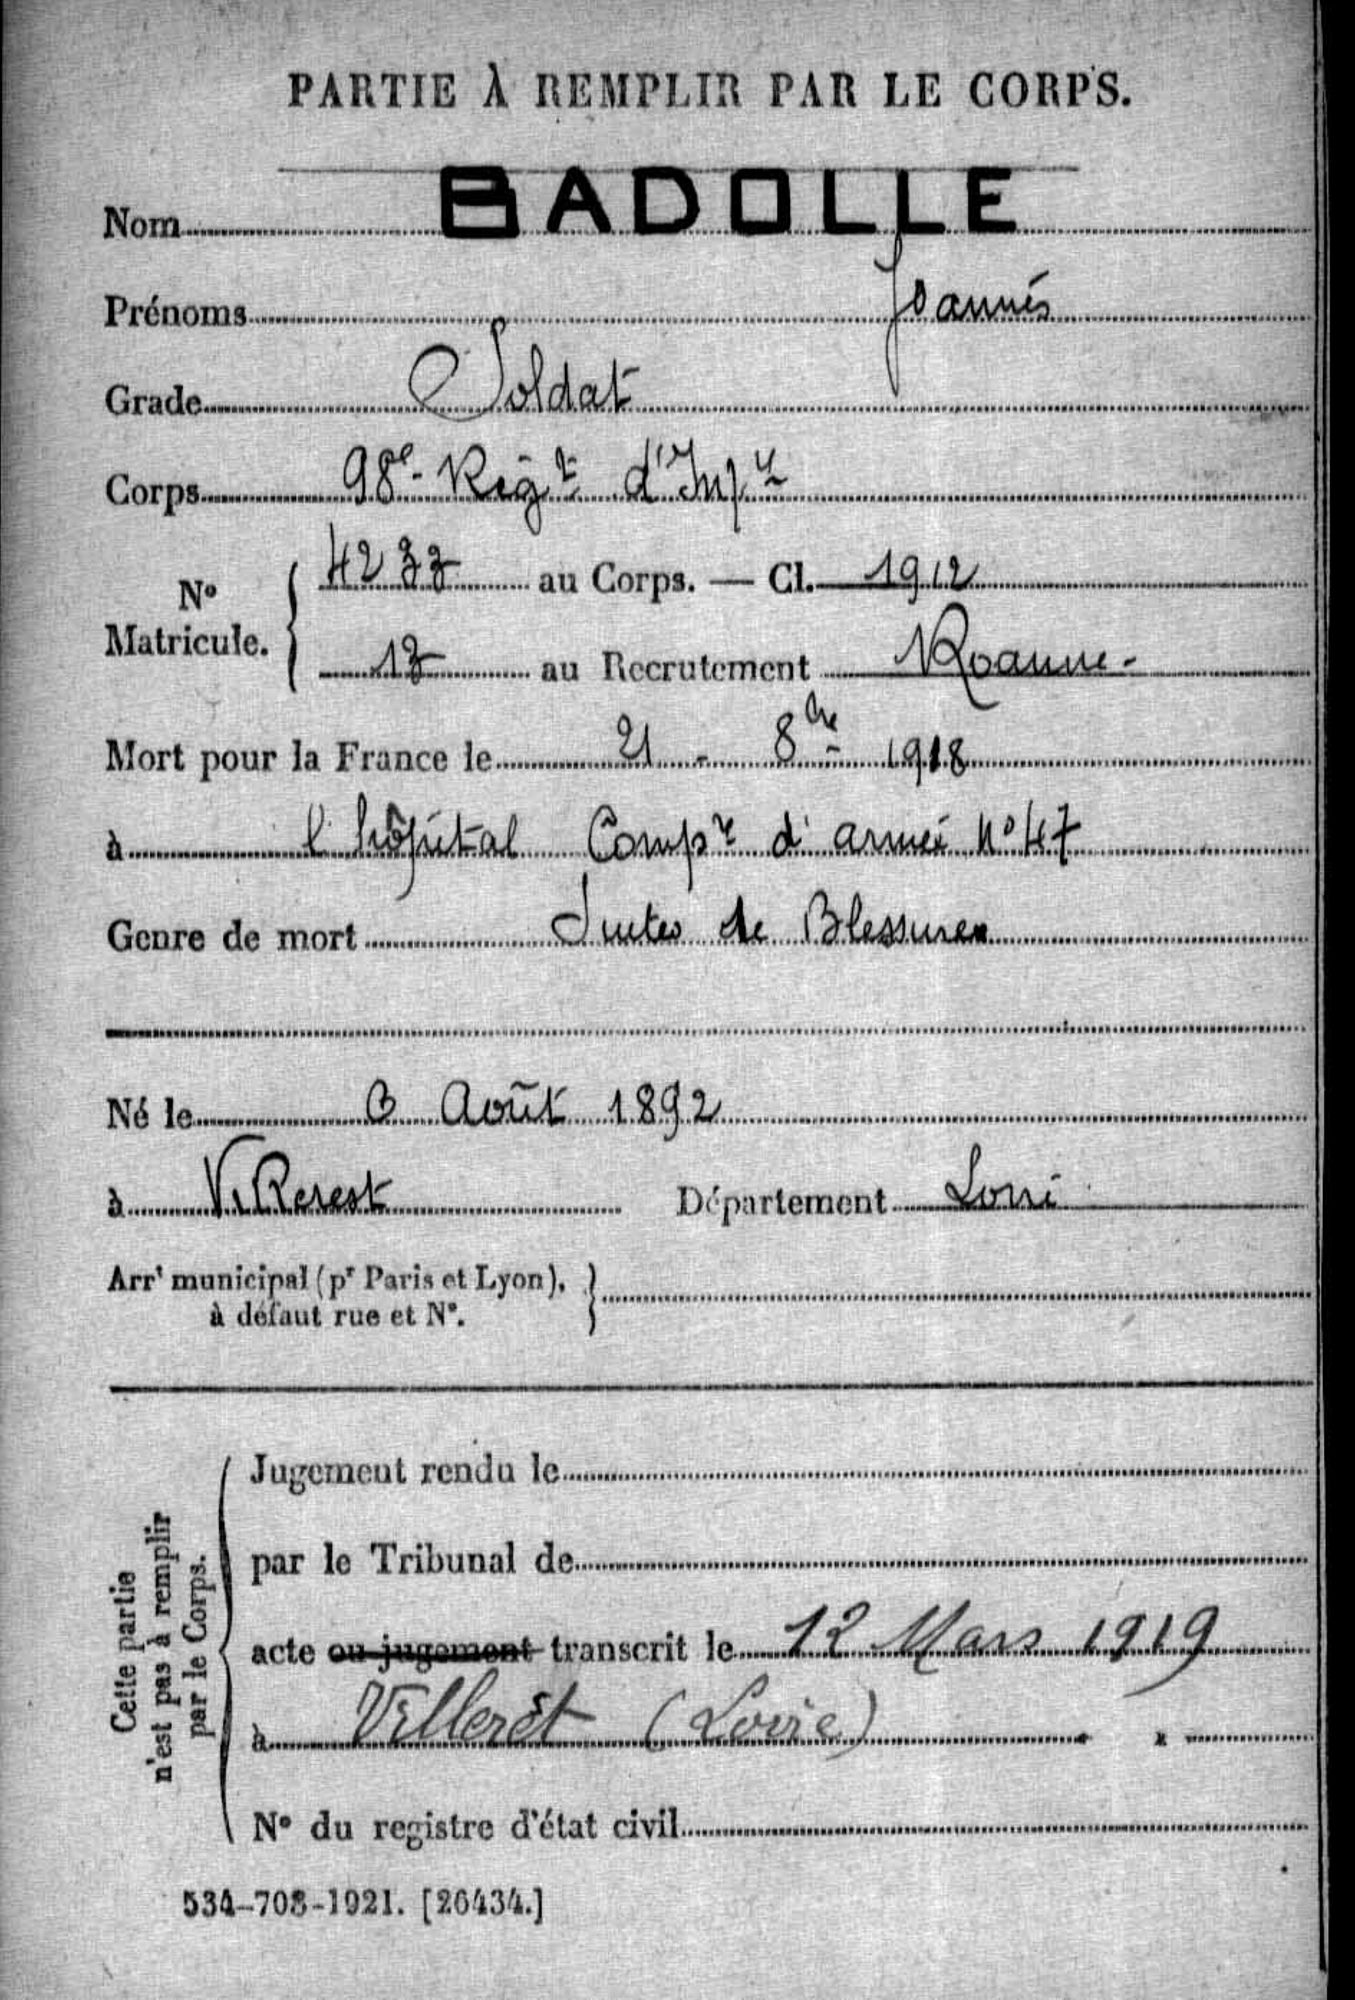 PARTIE À REMPLIR PAR LE CORPS.
Nom BADOLLE
Prénoms Joannès
Grade Soldat
Corps 98e Régt d'Infie
No Matricule. 4233 au Corps. — Cl. 1912
13 au Recrutement Roanne -
Mort pour la France le 21 - 8bre 1918
à l'hôpital Compre d'armée No 47
Genre de mort Suites de Blessures
Né le 3 Août 1892
à Villerest Département Loire
Arrt municipal (pr Paris et Lyon),
à défaut rue et No.
Cette partie
n'est pas à remplir
par le Corps.
Jugement rendu le
par le Tribunal de
acte ou jugement transcrit le 12 Mars 1919
à Villerêt (Loire)
No du registre d'état civil
534-708-1921. [26434.]